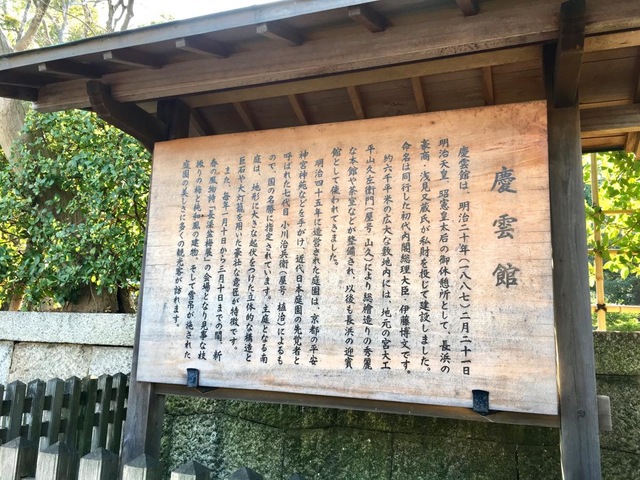 慶雲館
慶雲館は、明治二十年(一八八七)二月二十一日
明治天皇、昭憲皇太后の御休憩所として、長浜の
豪商・浅見又蔵氏が私財を投じて建設しました。
命名は同行した初代内閣総理大臣、伊藤博文です。
約六千平米の広大な敷地内には、地元の宮大工
平山久左衛門(屋号 山久)により総檜造りの秀麗
な本館や茶室などが整備され、以後も長浜の迎賓
館として使われてきました。
明治四十五年に造営された庭園は、京都の平安
神宮神苑などを手がけ、近代日本庭園の先覚者と
呼ばれた七代目 小川治兵衛(屋号 植治)によるも
ので、国の名勝に指定されています。主庭となる南
庭は、地形に大きな起伏をつけた立体的な構造と
巨石や大灯籠を用いた豪壮な意匠が特徴です。
また、毎年一月十日から三月十日までの間、新
春の風物詩「長浜盆梅展」の会場となり見事な枝
振りの梅と純和風の建物、そして雪吊が施された
庭園の美しさに多くの観光客が訪れます。